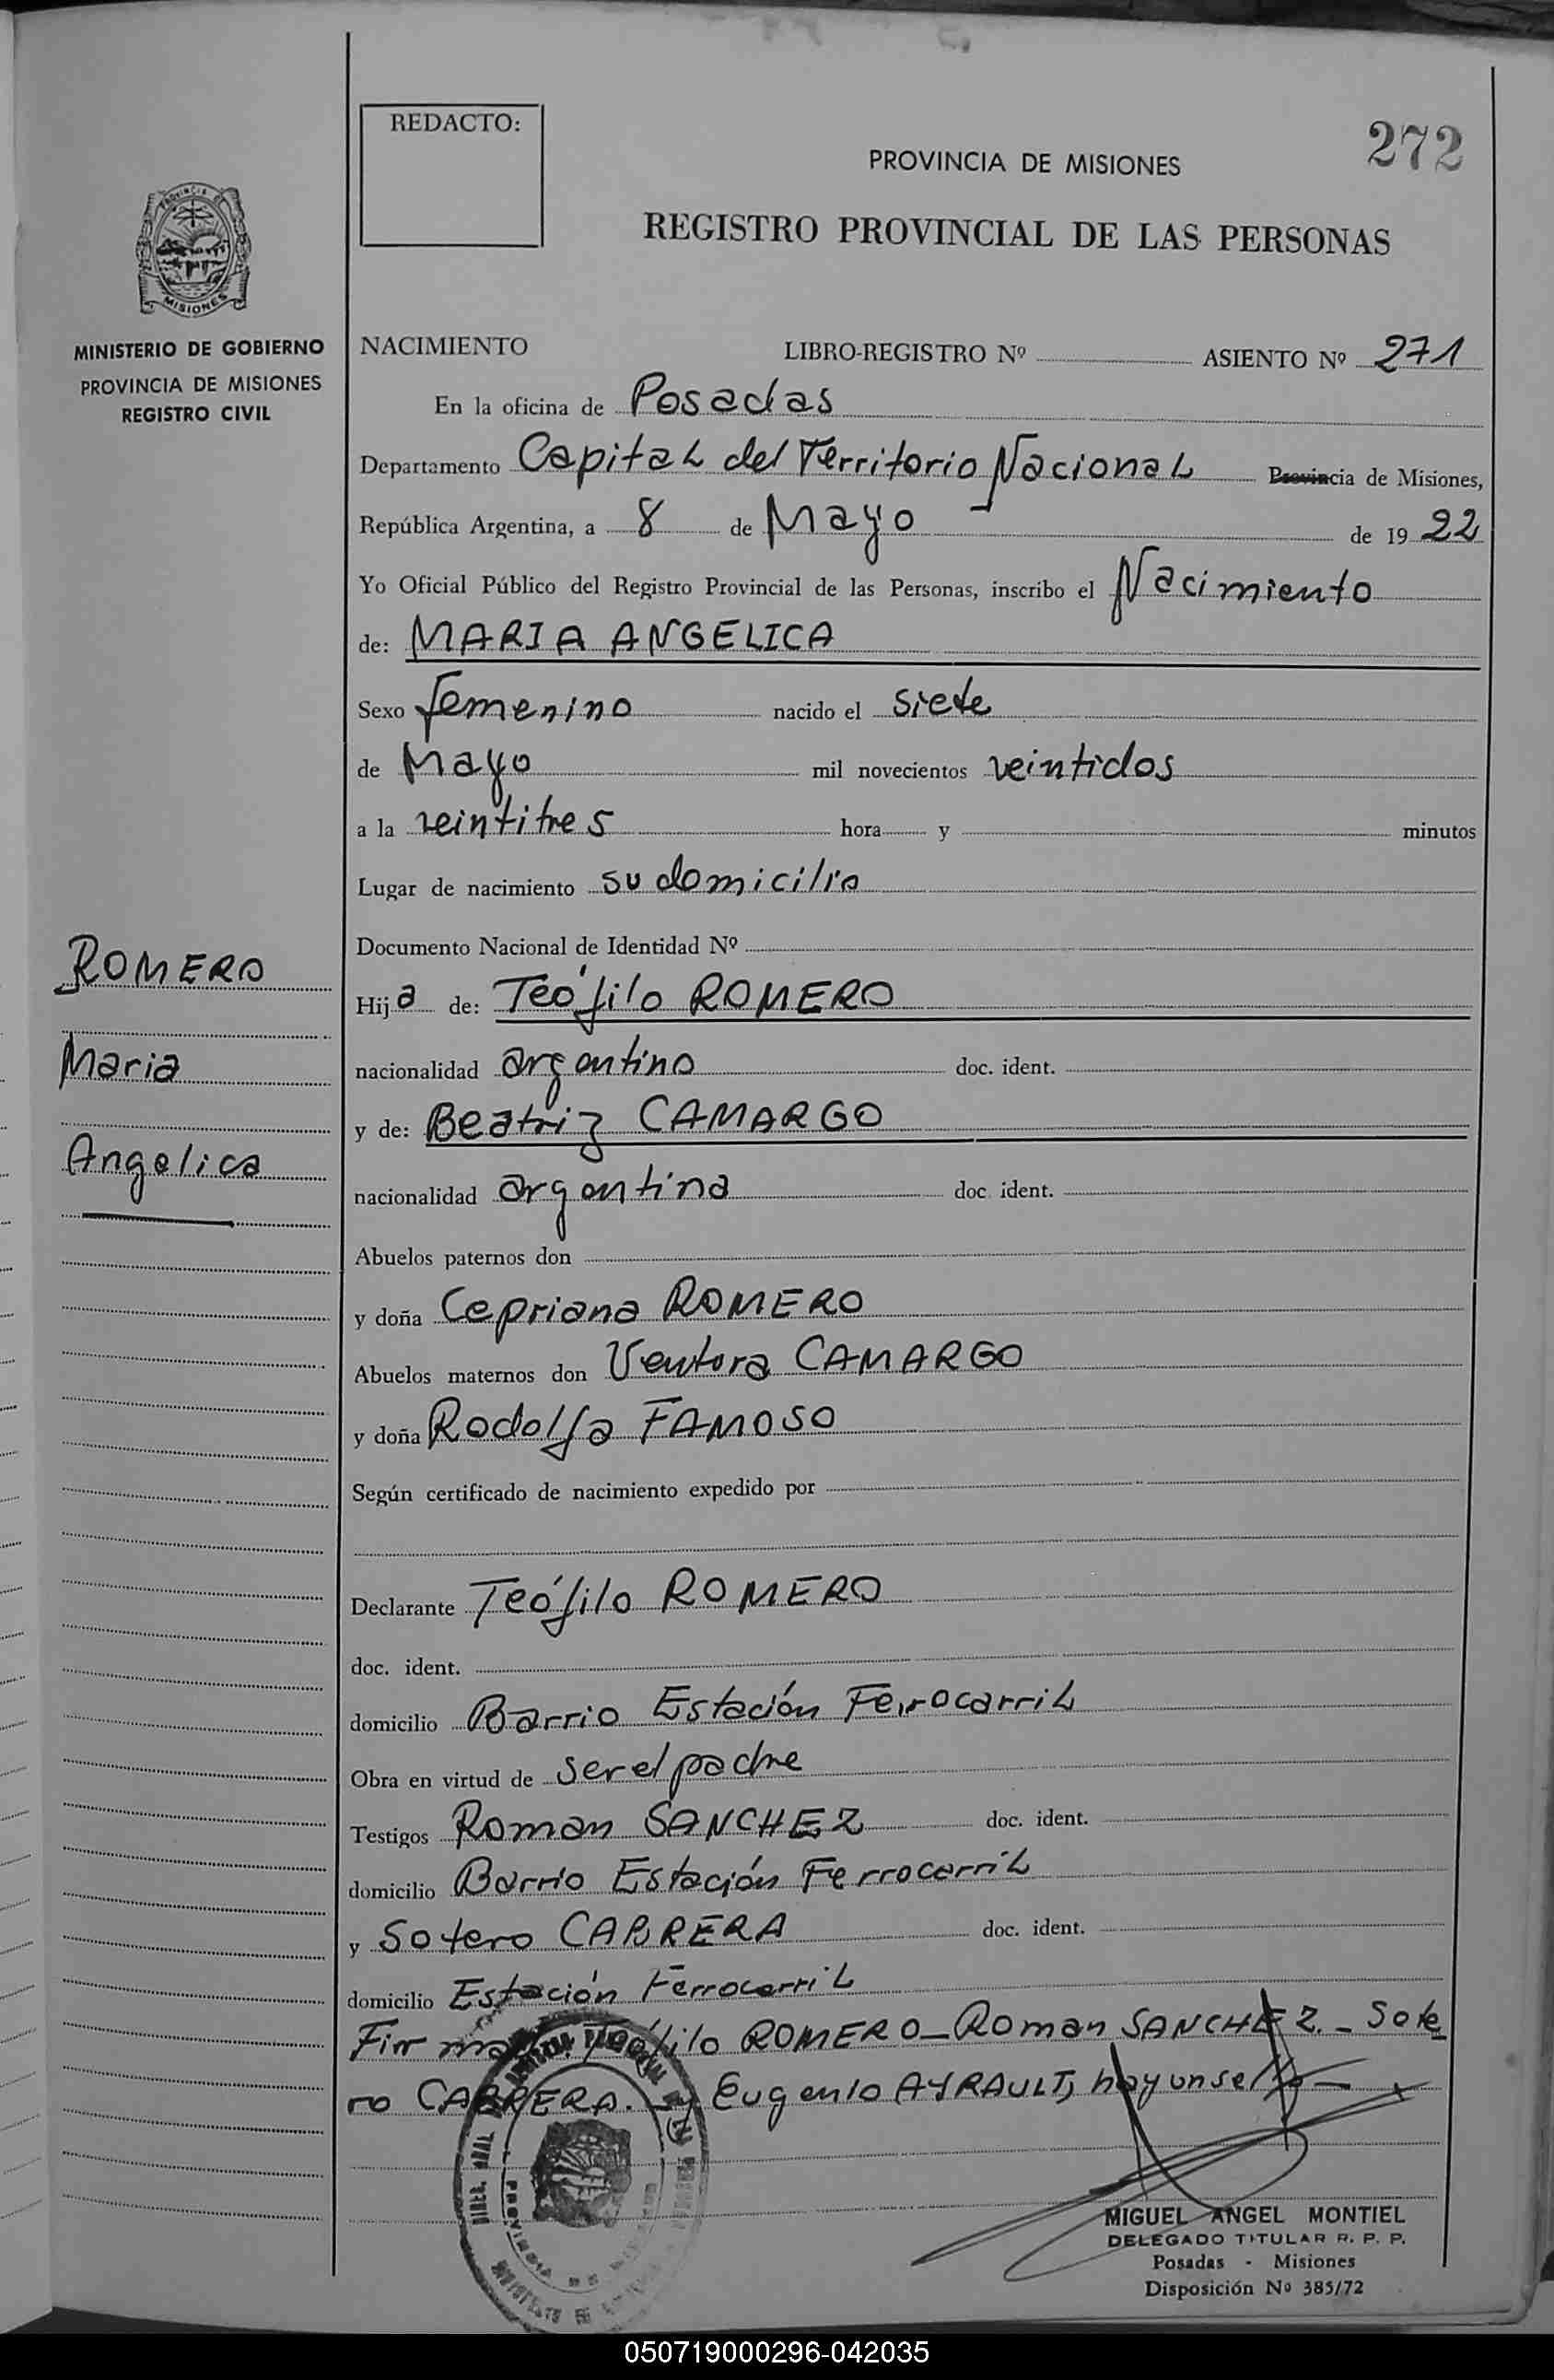 REDACTO:
272
PROVINCIA DE MISIONES
REGISTRO PROVINCIAL DE LAS PERSONAS
MISIONES
MINISTERIO DE GOBIERNO
PROVINCIA DE MISIONES
REGISTRO CIVIL
NACIMIENTO LIBRO-REGISTRO Nº ASIENTO Nº 271
En la oficina de Posadas
Departamento Capital del Territorio Nacional Provincia de Misiones,
República Argentina, a 8 de Mayo de 1922
Yo Oficial Público del Registro Provincial de las Personas, inscribo el Nacimiento
de: MARIA ANGELICA
Sexo femenino nacido el siete
de Mayo mil novecientos veintidos
a la veintitres hora y minutos
Lugar de nacimiento su domicilio
Documento Nacional de Identidad Nº
ROMERO
Maria
Angelica
Hija de: Teófilo ROMERO
nacionalidad argentino doc. ident.
y de: Beatriz CAMARGO
nacionalidad argentina doc. ident.
Abuelos paternos don
y doña Cepriana ROMERO
Abuelos maternos don Ventora CAMARGO
y doña Rodolfa FAMOSO
Según certificado de nacimiento expedido por
Declarante Teófilo ROMERO
doc. ident.
domicilio Barrio Estación Ferrocarril
Obra en virtud de ser el padre
Testigos Roman SANCHEZ doc. ident.
domicilio Barrio Estación Ferrocarril
y Sotero CABRERA doc. ident.
domicilio Estación Ferrocarril
Teófilo ROMERO - Roman SANCHEZ. - Sote
ro CABRERA. - Eugenio AYRAULT, hay un sello
MIGUEL ANGEL MONTIEL
DELEGADO TITULAR R. P. P.
Posadas - Misiones
Disposición Nº 385/72
050719000296-042035